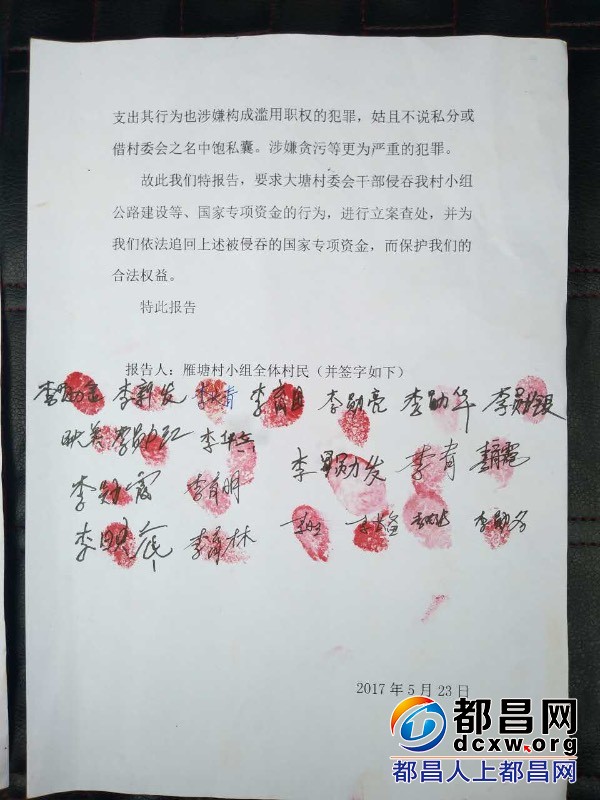 支出其行为也涉嫌构成滥用职权的犯罪，姑且不说私分或
借村委会之名中饱私囊。涉嫌贪污等更为严重的犯罪。
故此我们特报告，要求大塘村委会干部侵吞我村小组
公路建设等、国家专项资金的行为，进行立案查处，并为
我们依法追回上述被侵吞的国家专项资金，而保护我们的
合法权益。
特此报告
报告人：雁塘村小组全体村民（并签字如下）
李勋亮 李勋华 李勋银
李勋发 李青
李育明
李育林 李勋务
2017 年 5 月 23 日
都昌网
dcxw.org
都昌人上都昌网